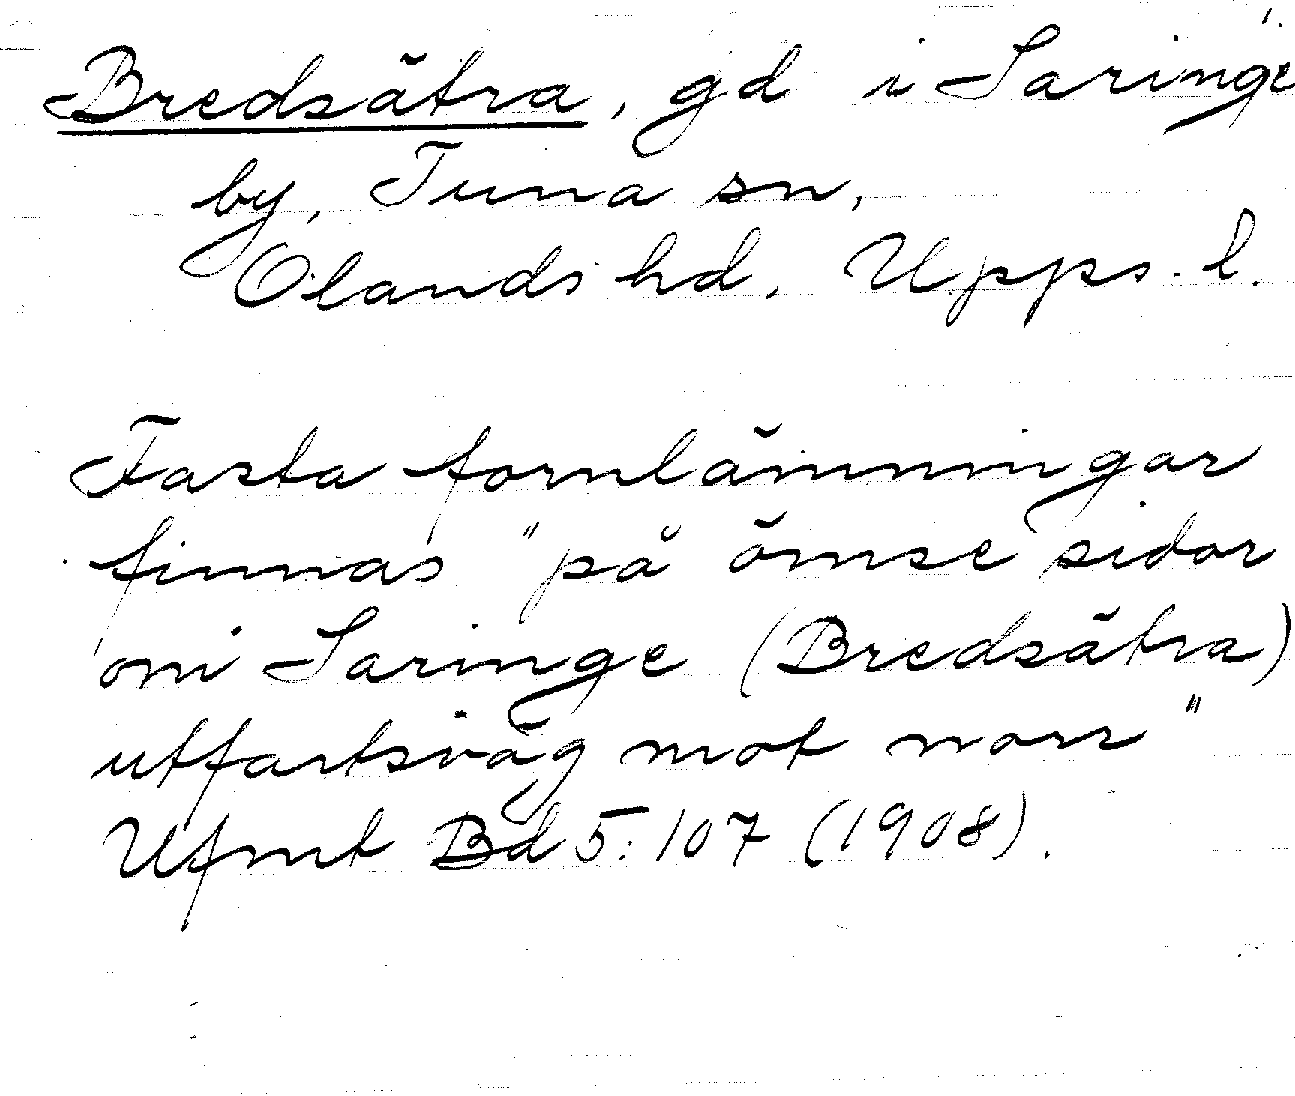 1.
Bredsätra, gd i Saringe
by, Tuna sn,
Olands hd, Upps. l.
Fasta fornlämningar
finnas "på ömse sidor
om Saringe (Bredsätra)
utfartsväg mot norr"
Ufmt Bd 5:107 (1908).